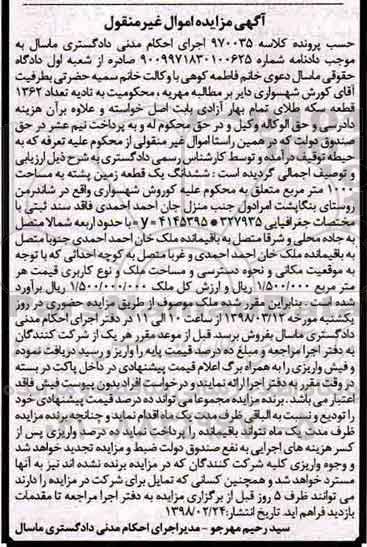 آگهی مزایده اموال غیر منقول
حسب پرونده کلاسه ۹۷۰۰۳۵ اجرای احکام مدنی دادگستری ماسال به
موجب دادنامه شماره ۹۰۰۹۹۷۱۸۳۰۱۰۰۶۲۵ صادره از شعبه اول دادگاه
حقوقی ماسال دعوی خانم فاطمه کوهی با وکالت خانم سمیه حضرتی بطرفیت
آقای کورش شهسواری دایر بر مطالبه مهریه، محکومیت به تادیه تعداد ۱۳۶۲
قطعه سکه طلای تمام بهار آزادی بابت اصل خواسته و علاوه برآن هزینه
دادرسی و حق الوکاله وکیل و در حق محکوم له و به پرداخت نیم عشر در حق
صندوق دولت که در همین راستا اموال غیر منقولی از محکوم علیه تعرفه که به
حیطه توقیف درآمده و توسط کارشناس رسمی دادگستری به شرح ذیل ارزیابی
و توصیف اجمالی گردیده است: ششدانگ یک قطعه زمین پشته به مساحت
۱۰۰۰ متر مربع متعلق به محکوم علیه کوروش شهسواری واقع در شاندرمن
روستای بنگاپشت امرادول جنب منزل جان احمد احمدی فاقد سند ثبتی با
مختصات جغرافیایی ۳۲۷۹۳۵ * ۴۱۴۵۳۹۵ = y با حدود اربعه شمالا متصل
به جاده محلی و شرقا متصل به باقیمانده ملک خان احمد احمدی جنوبا متصل
به باقیمانده ملک خان احمد احمدی و غربا متصل به کوچه احداثی که با توجه
به موقعیت مکانی و نحوه دسترسی و مساحت ملک و نوع کاربری قیمت هر
متر مربع ۱/۵۰۰/۰۰۰ ریال و ارزش کل ملک ۱/۵۰۰/۰۰۰/۰۰۰ ریال برآورد
شده است. بنابراین مقرر شده ملک موصوف از طریق مزایده حضوری در روز
یکشنبه مورخه ۱۳۹۸/۰۳/۱۲ از ساعت ۱۰ الی ۱۱ در دفتر اجرای احکام مدنی
دادگستری ماسال بفروش برسد. قبل از موعد مقرر هر یک از شرکت کنندگان
به دفتر اجرا مراجعه و مبلغ ده درصد قیمت پایه را واریز و رسید دریافت نموده
و فیش واریزی را به همراه برگ اعلام قیمت پیشنهادی در داخل پاکت در بسته
در وقت مقرر به دفتر اجرا ارائه نمایند و درخواست افراد بدون پیوست فیش فاقد
اعتبار می باشد. برنده مزایده مجموعا می تواند ده درصد قیمت پیشنهادی خود
را تودیع و نسبت به الباقی ظرف مدت یک ماه اقدام نماید و چنانچه برنده مزایده
ظرف مدت یک ماه نتواند باقیمانده را پرداخت نماید ده درصد واریزی پس از
کسر هزینه های اجرایی به نفع صندوق دولت ضبط و مزایده تجدید خواهد شد
و وجوه واریزی کلیه شرکت کنندگان که در مزایده برنده نشده اند نیز به آنها
مسترد خواهد شد و همچنین کسانی که تمایل برای شرکت در مزایده را دارند
می توانند ظرف ۵ روز قبل از برگزاری مزایده به دفتر اجرا مراجعه تا مقدمات
بازدید فراهم آید. تاریخ انتشار: ۱۳۹۸/۰۲/۲۴
سید رحیم مهرجو - مدیر اجرای احکام مدنی دادگستری ماسال